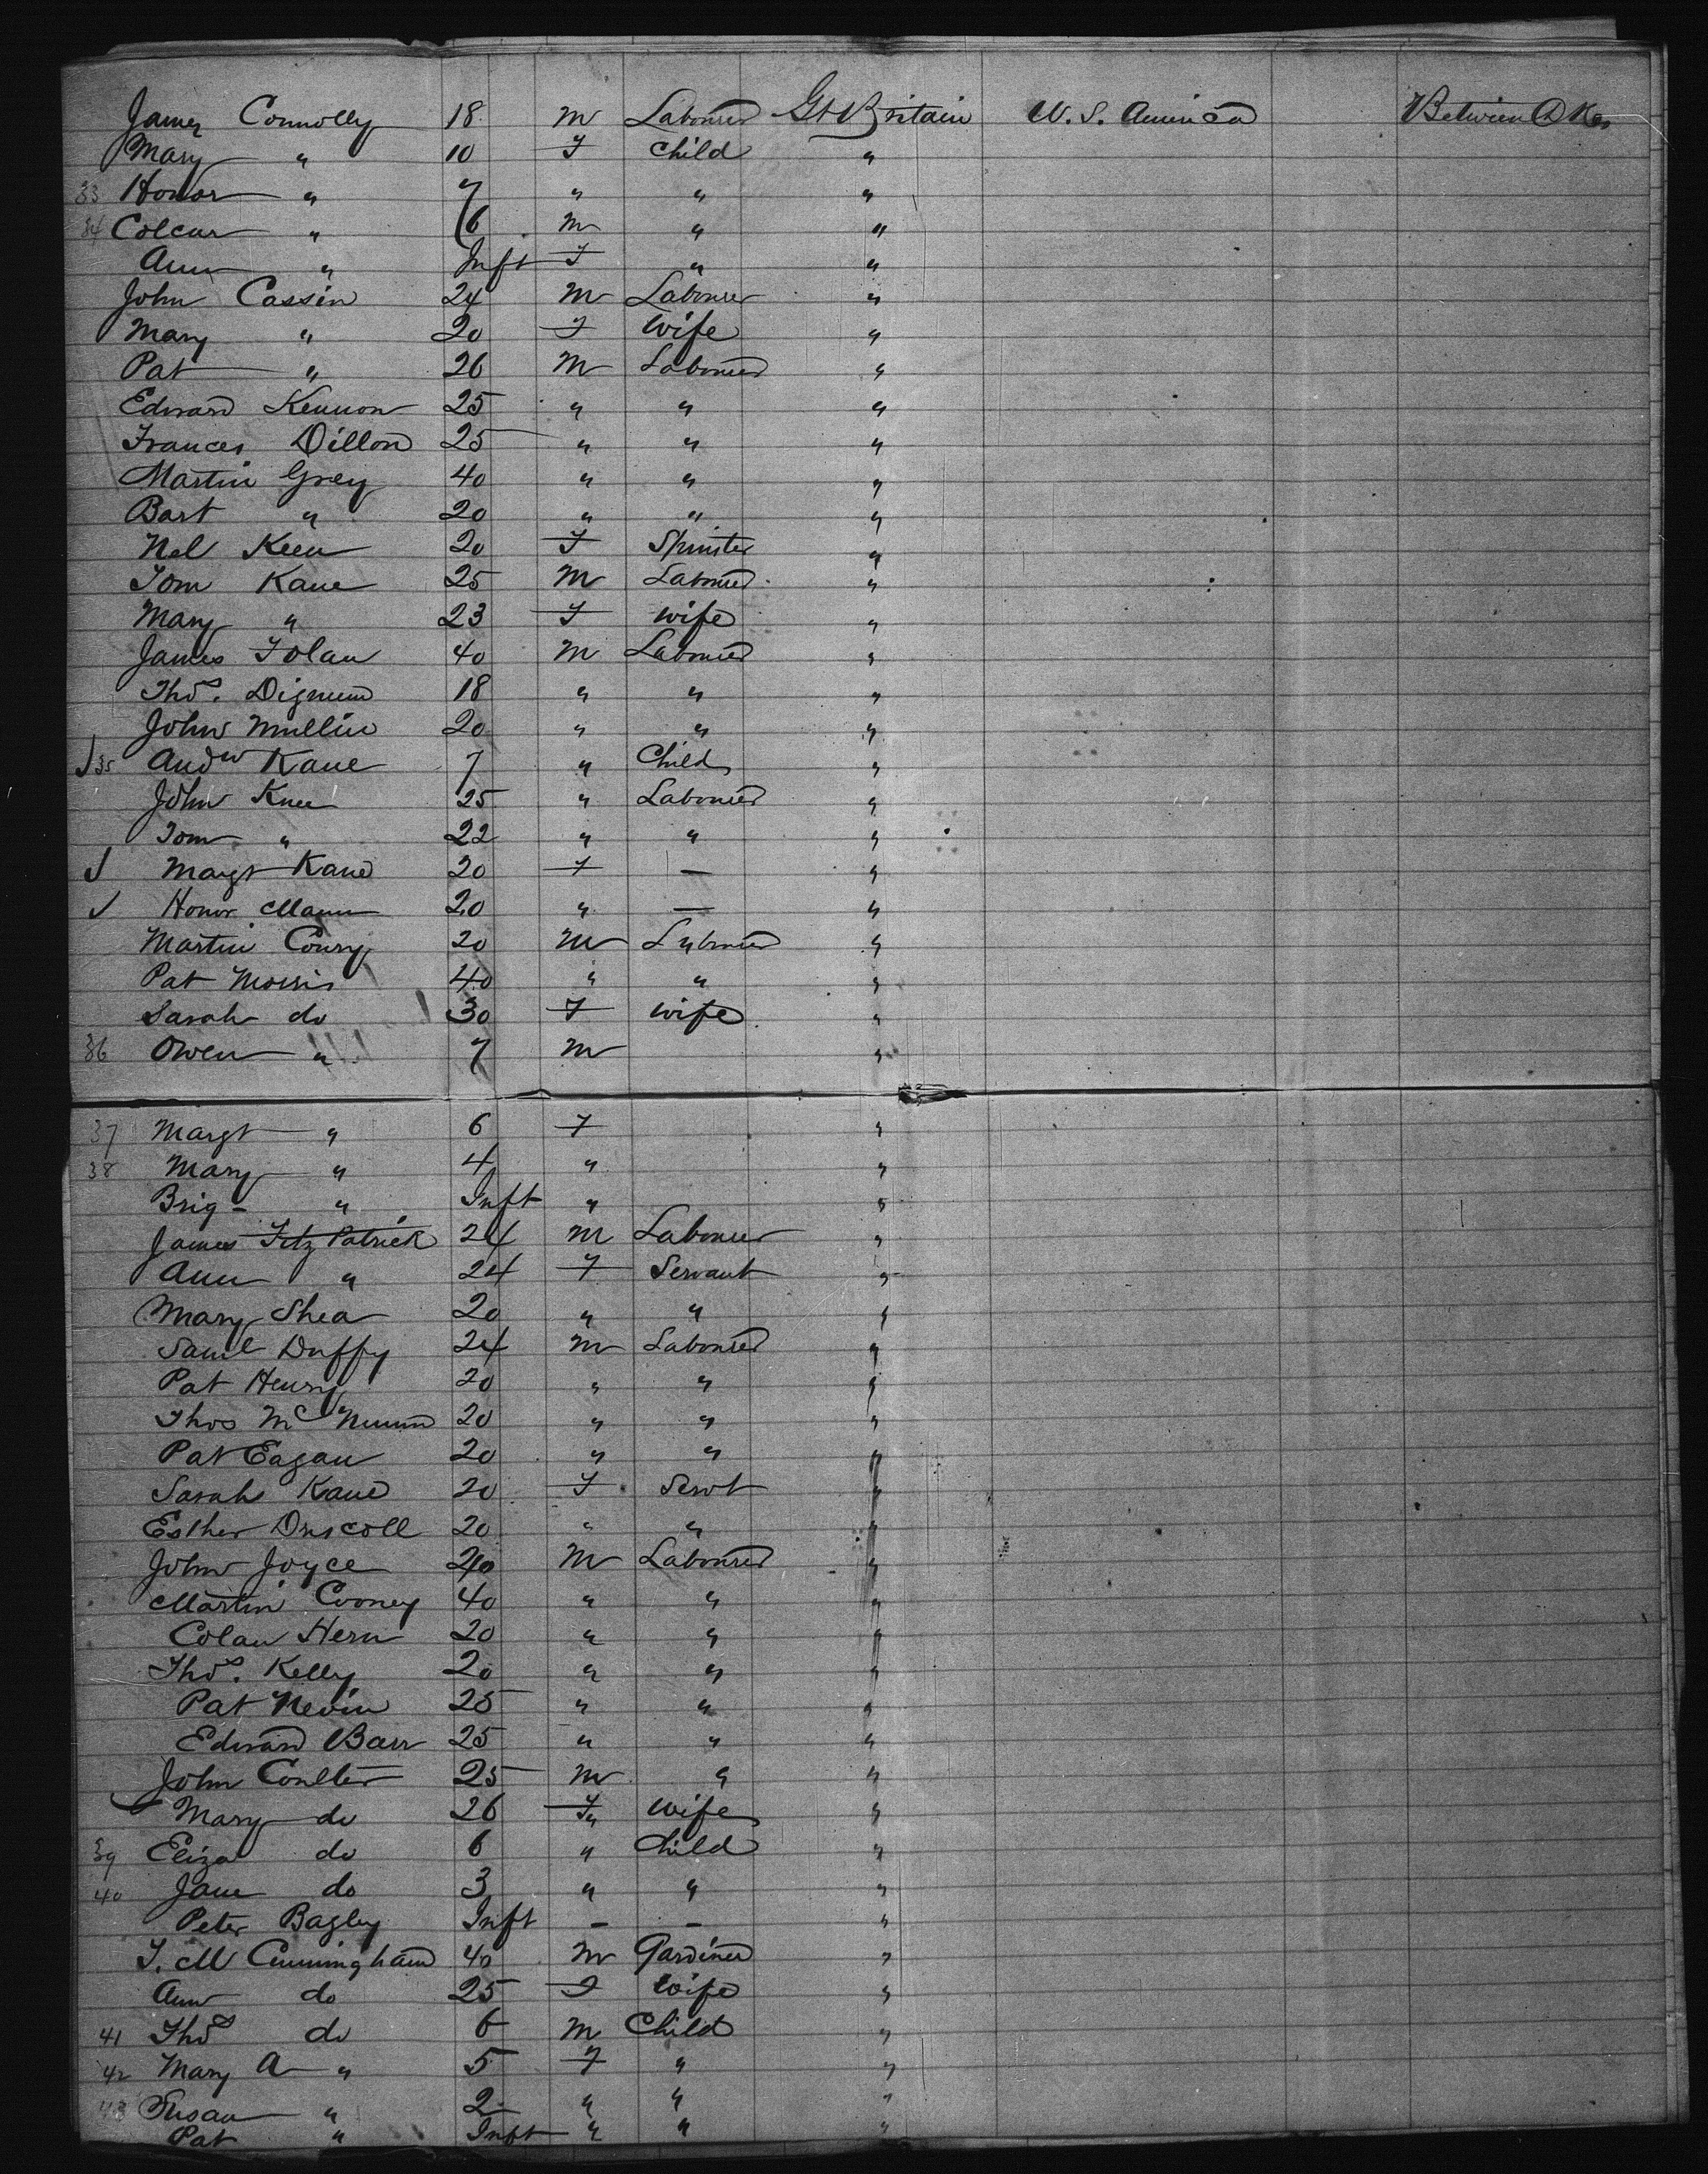 James Connolly 18 m Labourer Gt Britain U. S. America Between Dks
Mary " 10 F Child "
33 Honor " 7 " " "
34 Colcur " 6 m " "
Ann " Inft F " "
John Cassin 24 m Labourer "
Mary " 20 F Wife "
Pat " 26 m Labourer "
Edward Kennon 25 " " "
Frances Dillon 25 " " "
Martin Grey 40 " " "
Bart " 20 " " "
Nel Keen 20 F Spinster "
Tom Kane 25 m Labourer "
Mary " 23 F Wife "
James Folan 40 m Labourer "
Thos. Dignum 18 " " "
John Mullin 20 " " "
35 Andw Kane 7 " Child "
John Knee 25 " Labourer "
Tom " 22 " " "
Margt Kane 20 F — "
Honor Mann 20 " — "
Martin Conry 20 m Labourer "
Pat Morris 40 " " "
Sarah do 30 F Wife "
36 Owen " 7 m "
37 Margt " 6 F "
38 Mary " 4 " "
Brig - " Inft " "
James Fitz Patrick 24 m Labourer "
Ann " 24 F Servant "
Mary Shea 20 " " "
Saml Duffy 24 m Labourer "
Pat Henry 20 " " "
Thos Mc 20 " " "
Pat Eagan 20 " " "
Sarah Kane 20 F Servt "
Esther Driscoll 20 " " "
John Joyce m Labourer "
Martin Cooney 40 " " "
Colan Hern 20 " " "
Thos. Kelly 20 " " "
Pat Nevin 25 " " "
Edward Barr 25 " " "
John Coulter 25 m " "
Mary do 26 F" Wife "
39 Eliza do 6 " Child "
40 Jane do 3 " " "
Peter Bagley Inft – – "
T. M Cunningham 40 m Gardiner "
Ann do 25 F Wife "
41 Thos do 6 m Child "
42 Mary A " 5 F " "
43 Susan " 2 " " "
Pat " Inft " " "